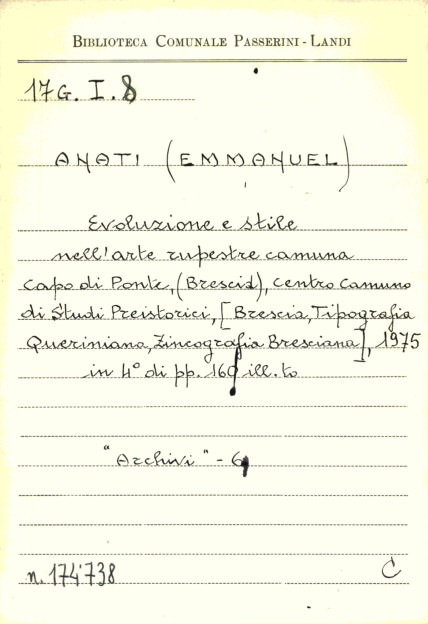 BIBLIOTECA COMUNALE PASSERINI - LANDI
17 G. I. 8
ANATI (EMMANUEL)
Evoluzione e stile
nell'arte rupestre camuna
Capo di Ponte, (Brescia), Centro Camuno
di Studi Preistorici, [Brescia, Tipografia
Queriniana, Zincografia Bresciana], 1975
in 4° di pp. 160 ill.to
"Archivi" - 6,
n. 174738
C